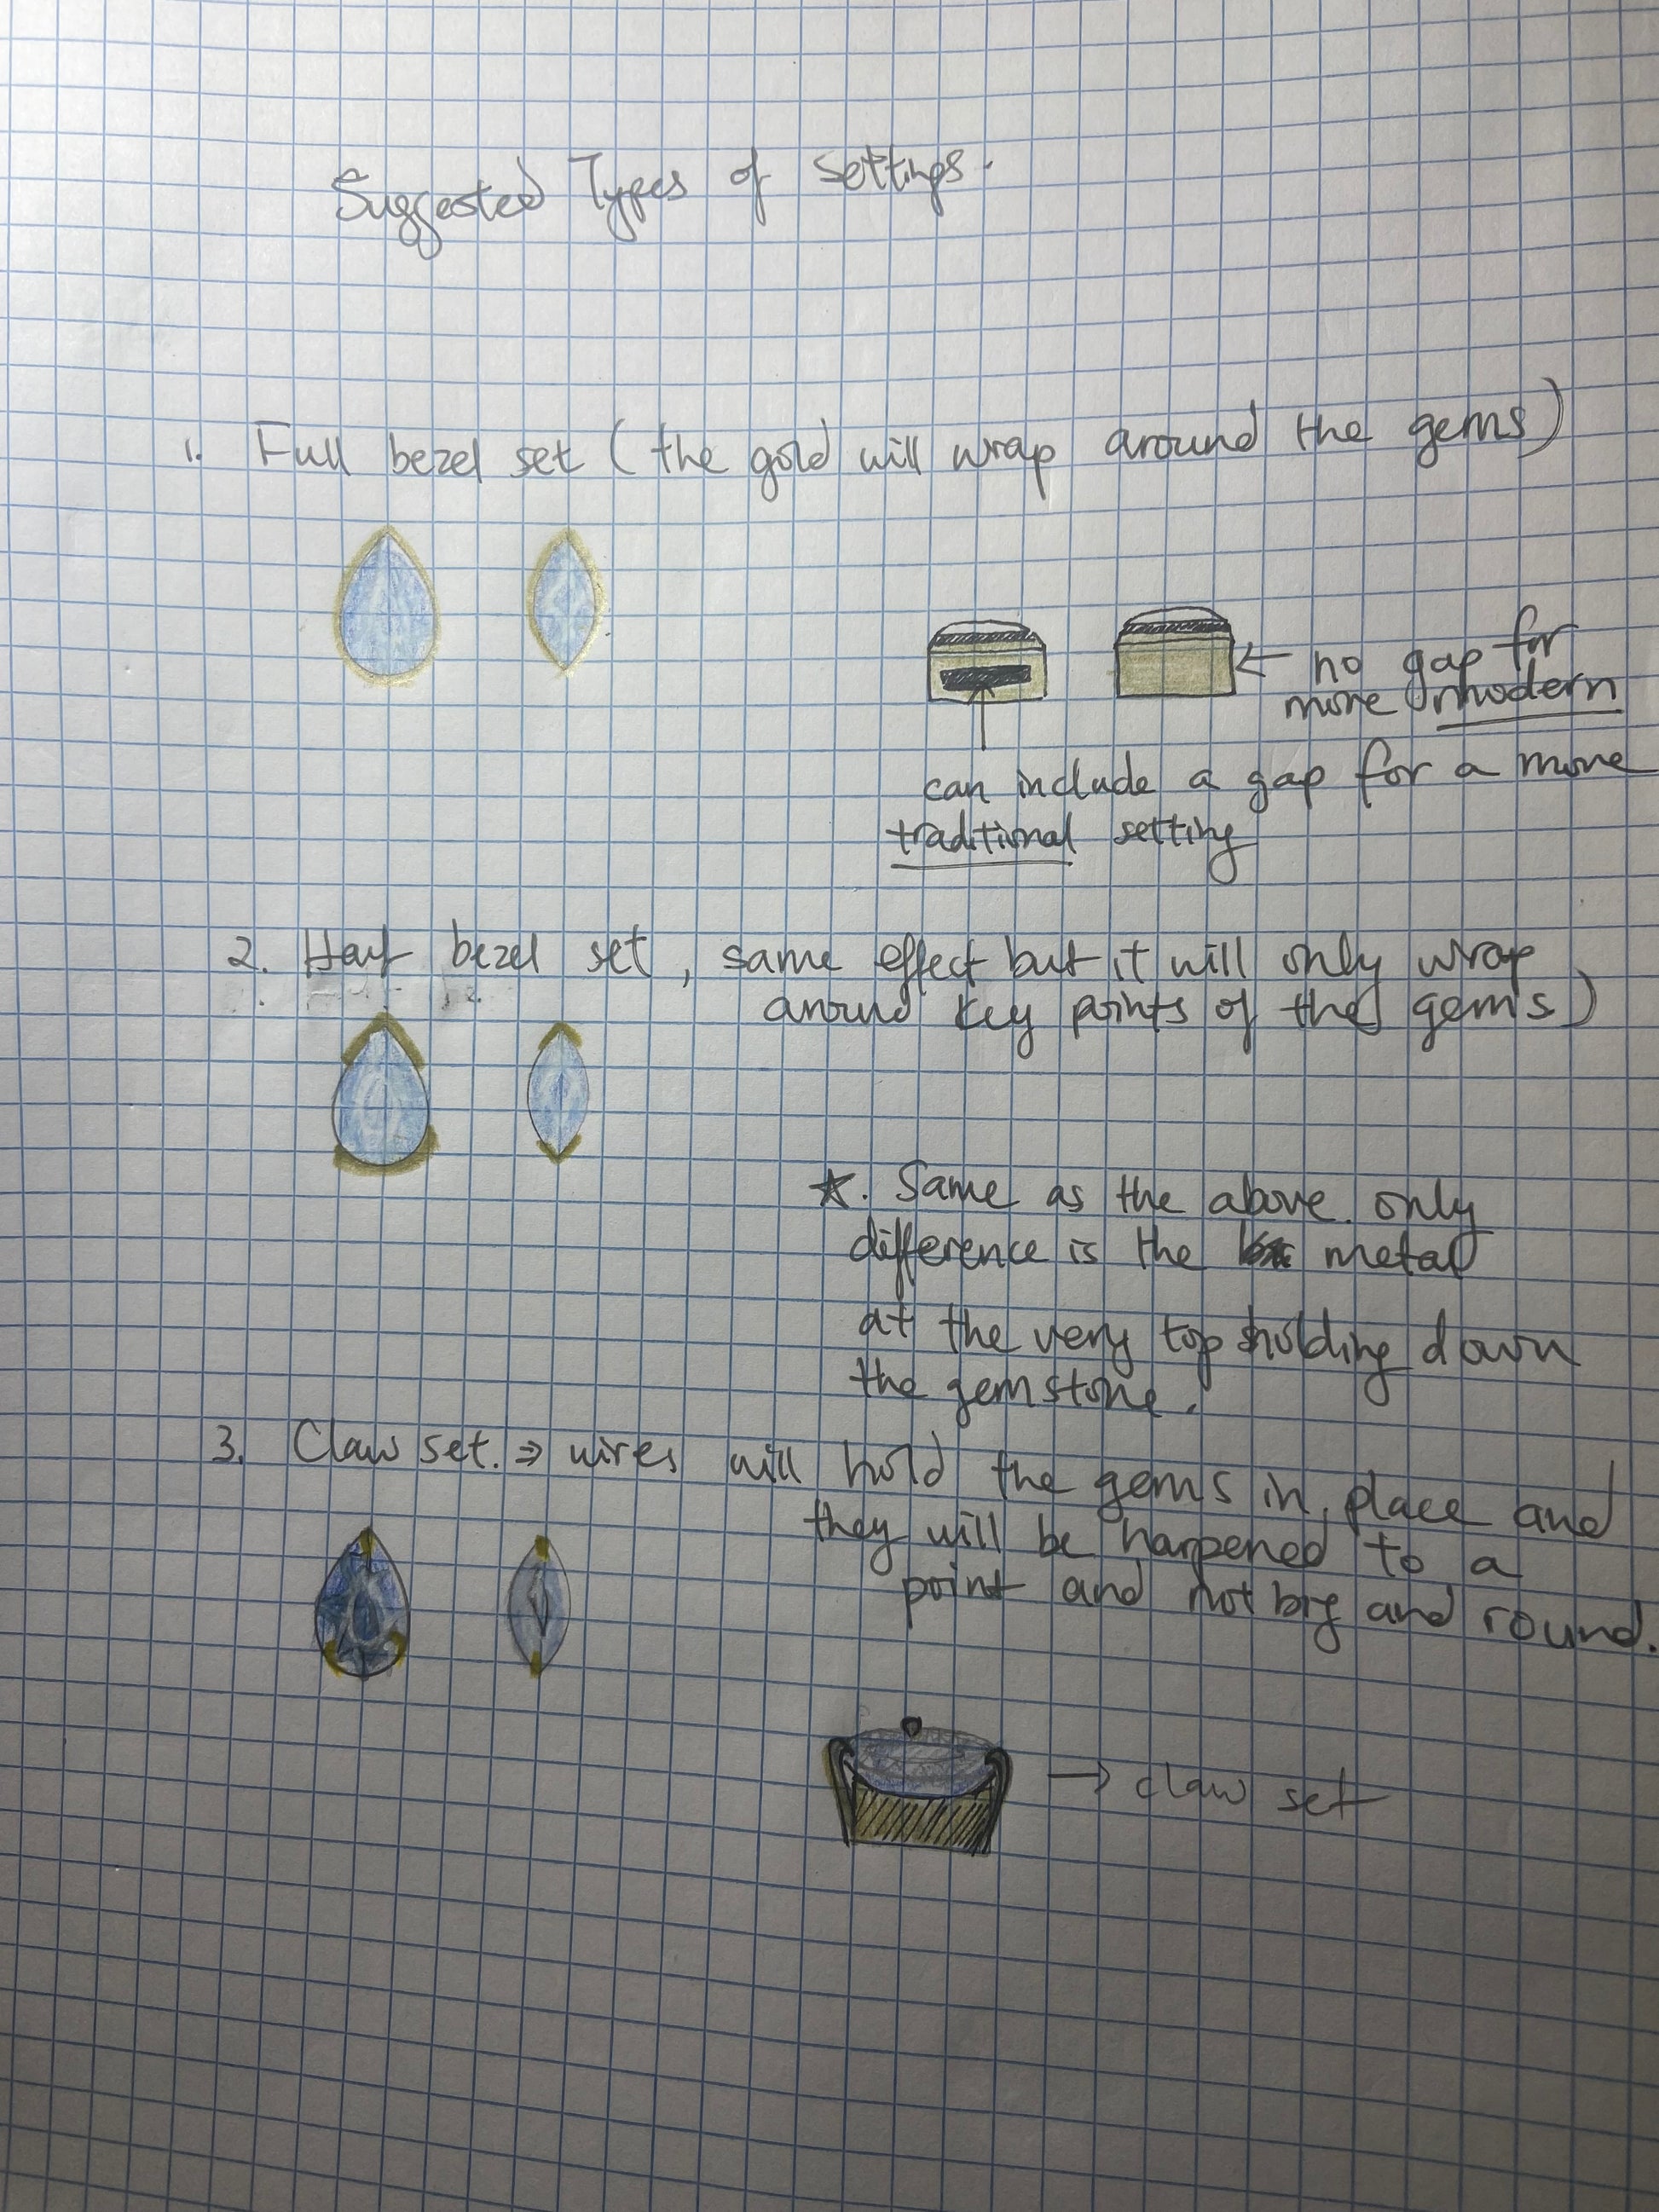 Suggested Types of settings.
1. Full bezel set (the gold will wrap around the gems)
← no gap for
more modern
can include a gap for a more
traditional setting
2. Half bezel set, same effect but it will only wrap
around key points of the gems)
★. Same as the above. only
difference is the metal
at the very top holding down
the gemstone.
3. Claw set. ⇒ wires will hold the gems in place and
they will be harpened to a
point and not big and round.
→ claw set